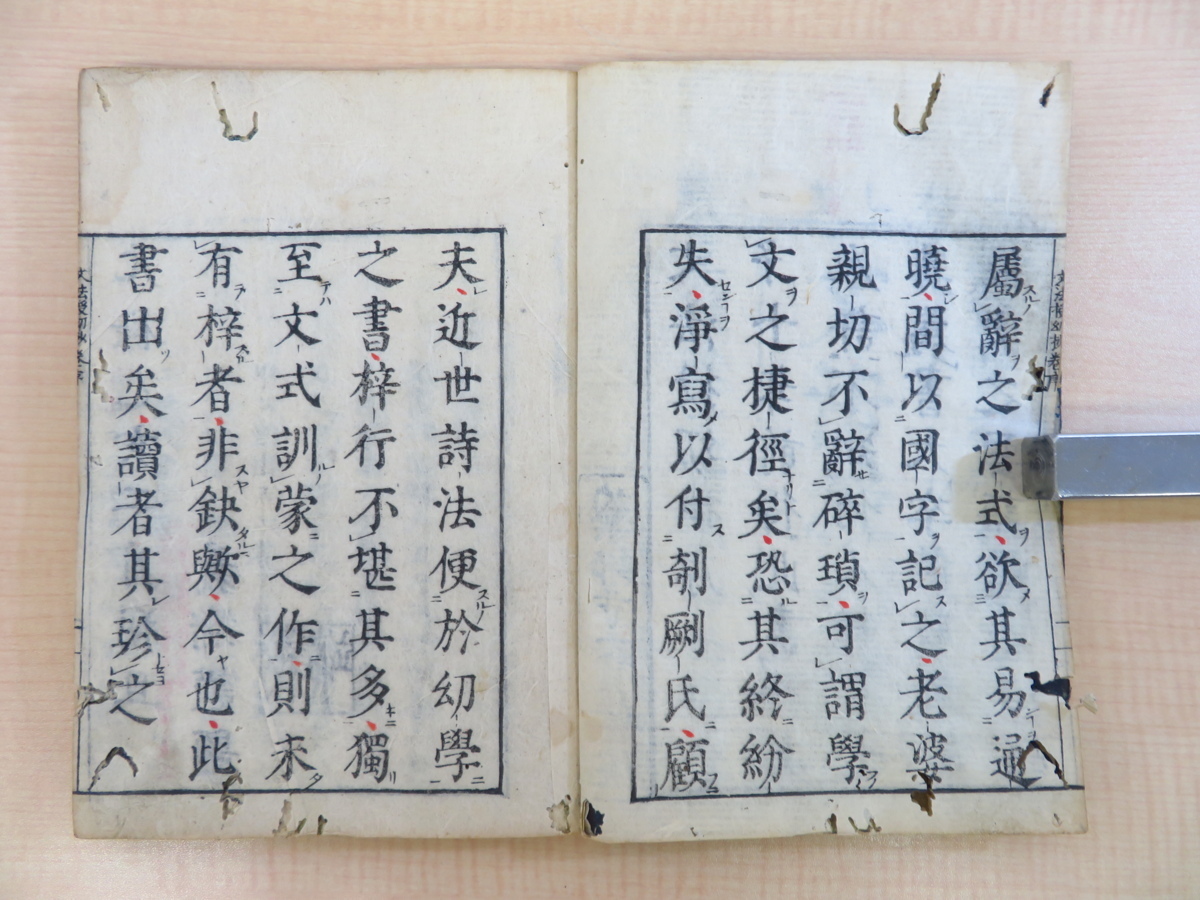 屬辭之法式欲其易通
曉間以國字記之老婆
親切不辭碎瑣可謂學
文之捷徑矣恐其終紛
失淨寫以付剞劂氏顧
夫近世詩法便於幼學
之書梓行不堪其多獨
至文式訓蒙之作則未
有梓者非缺歟今也此
書出矣讀者其珍之